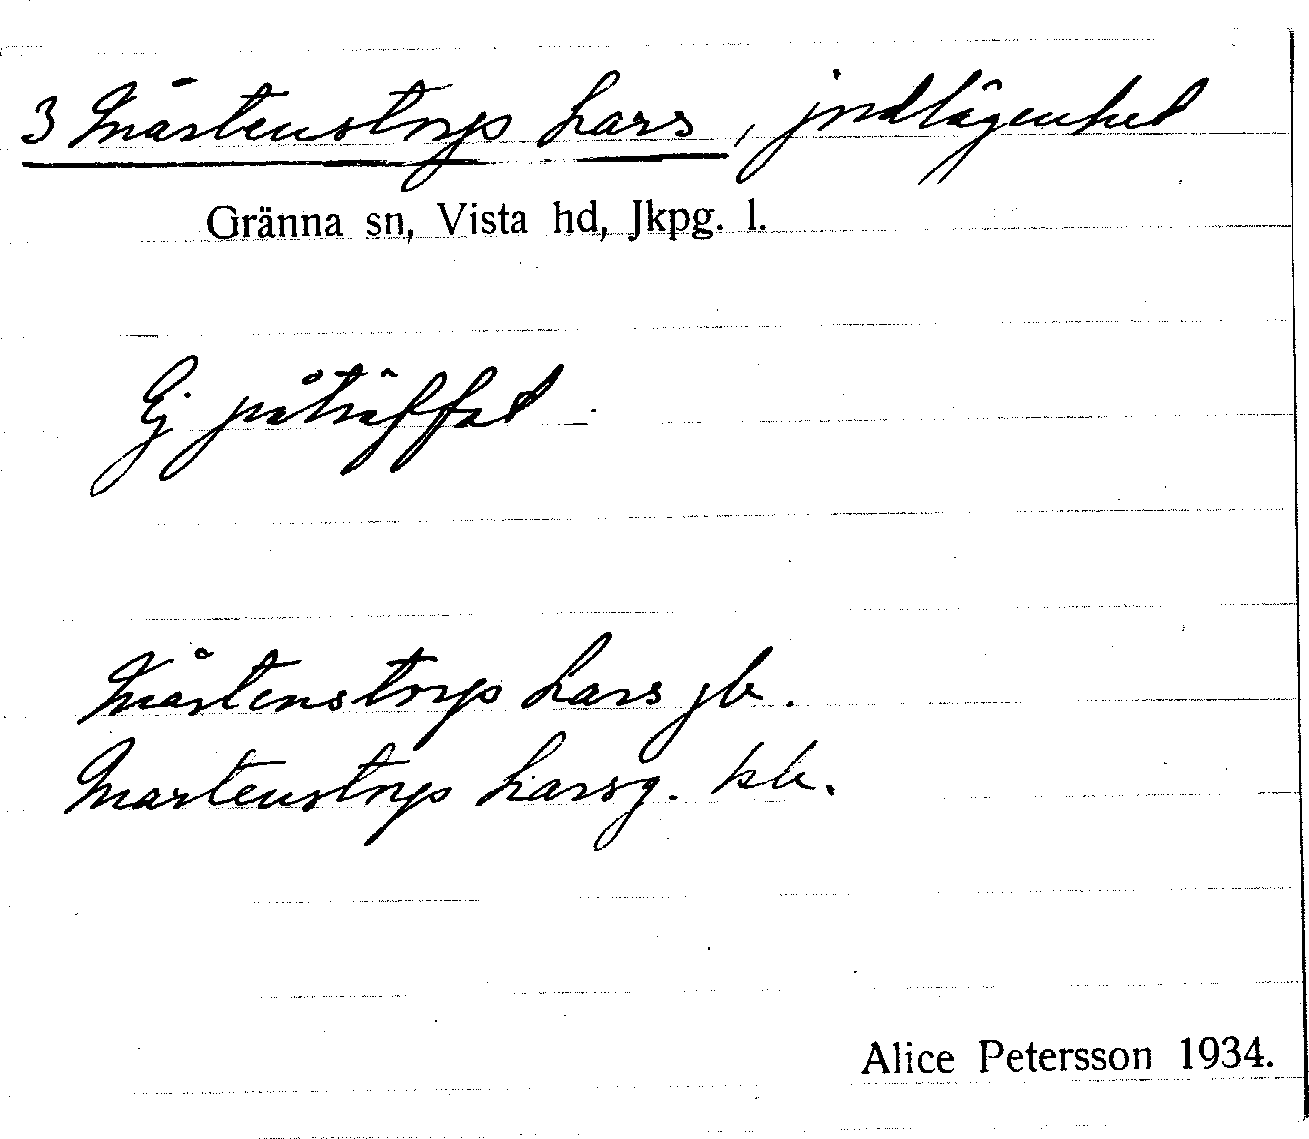 3 Mårtenstorps Lars, jordlägenhet
Gränna sn, Vista hd, Jkpg. l.
Ej påträffad
Mårtenstorps Lars jb.
Martenstorps Larsg. kb.
Alice Petersson 1934.